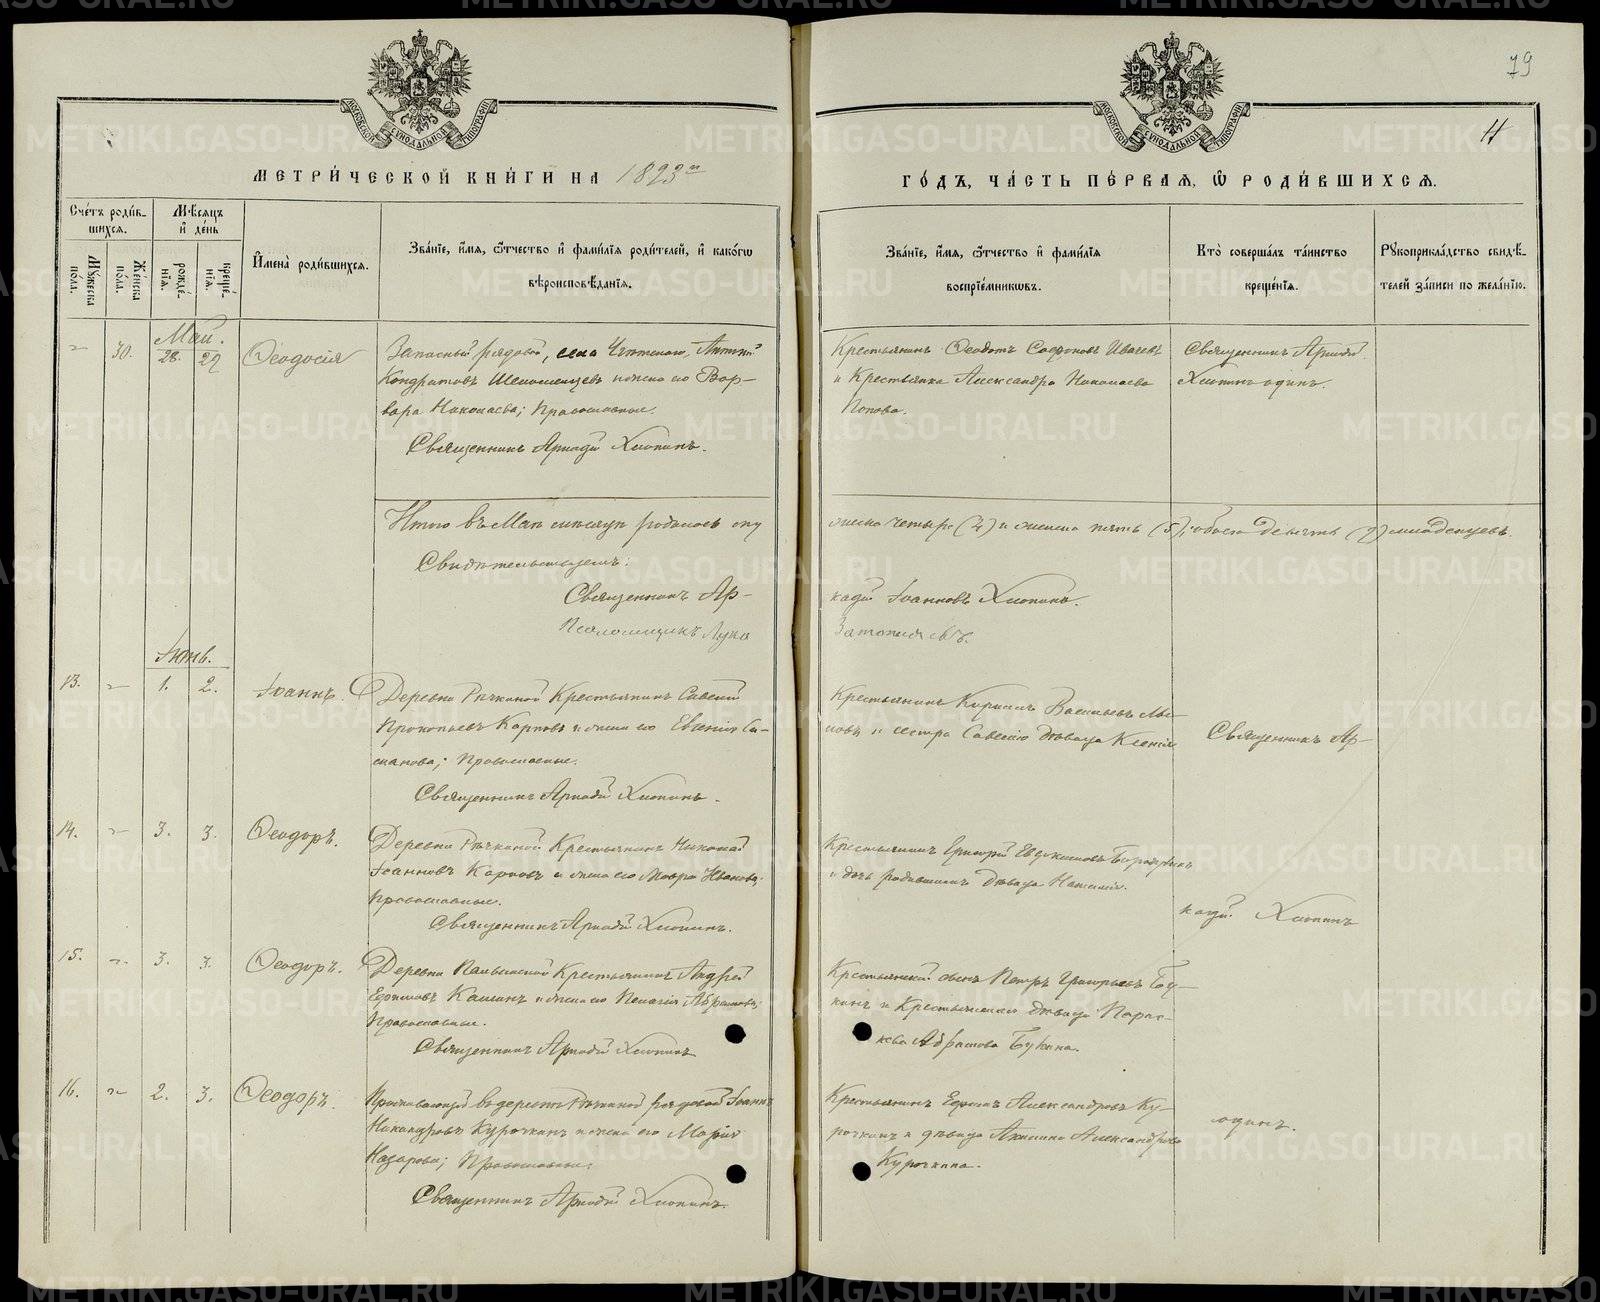 79
11
МЕТРИ́ЧЕСКОЙ КНИ́ГИ НА 1893 й
ГО́ДЪ, ЧА́СТЬ ПЕ́РВАѦ, Ѡ҆ РОДИ́ВШИХСѦ.
Сче́тъ роди́в-
шихсѧ.
Мꙋ́жеска по́ла.
Же́нска по́ла.
Мѣ́сѧцъ и҆ де́нь
рожде́-
нїѧ.
креще́-
нїѧ.
И҆мена̀ роди́вшихсѧ.
Зва́нїе, и҆́мѧ, ѻ҆́тчество и҆ фами́лїѧ роди́телей, и҆ како́гѡ
вѣроисповѣ́данїѧ.
Зва́нїе, и҆́мѧ, ѻ҆́тчество и҆ фами́лїѧ
воспрїе́мникѡвъ.
Кто̀ соверша́лъ та́инство
креще́нїѧ.
Рꙋкоприкла́дство свидѣ́-
телей за́писи по жела́нїю.
Май.
30. 28. 29 Ѳеодосія
Запасный рядовой, села
Кондратовъ и жена его Вар-
вара Николаева; Православные.
Священникъ Аркадій Хлопинъ.
Крестьянинъ Ѳеодотъ Софроновъ
и Крестьянка Александра Николаева
Попова.
Священникъ Аркадій
Хлопинъ одинъ.
Итого въ Маѣ мѣсяцѣ родилось му
жеска четыре (4) и женска пять (5), обоего девять (9) младенцевъ.
Свидѣтельствуемъ:
Священникъ Ар-
кадій Іоанновъ Хлопинъ.
Псаломщикъ Лука
Іюнь.
13. 1. 2. Іоаннъ.
Деревни Рѣчкиной Крестьянинъ Савелій
Прокопьевъ Карповъ и жена его Евгенія
Православные.
Священникъ Аркадій Хлопинъ.
Крестьянинъ Кириллъ Васильевъ
и сестра Савелію дѣвица Ксенія
Священникъ Ар-
14. 3. 3. Ѳеодоръ.
Деревни Рѣчкиной Крестьянинъ Николай
Іоанновъ Карповъ и жена его Мавра Иванова;
Православные.
Священникъ Аркадій Хлопинъ.
Крестьянинъ Григорій Евдокимовъ
и дочь родившаго дѣвица
кадій Хлопинъ
15. 3. 3. Ѳеодоръ.
Деревни Крестьянинъ Андрей
Ефимовъ и жена его Пелагія Абрамова;
Православные.
Священникъ Аркадій Хлопинъ
Крестьянскій сынъ Петръ Григорьевъ Бу-
кинъ и Крестьянская дѣвица Парас-
кева Абрамова Букина.
16. 2. 3. Ѳеодоръ.
Проживающій въ деревнѣ Рѣчкиной рядовой Іоаннъ
Никандровъ Курочкинъ и жена его Марія
Назарова; Православные.
Священникъ Аркадій Хлопинъ.
Крестьянинъ Ефимъ Александровъ Ку-
рочкинъ и дѣвица Акилина Александрова
Курочкина.
одинъ.